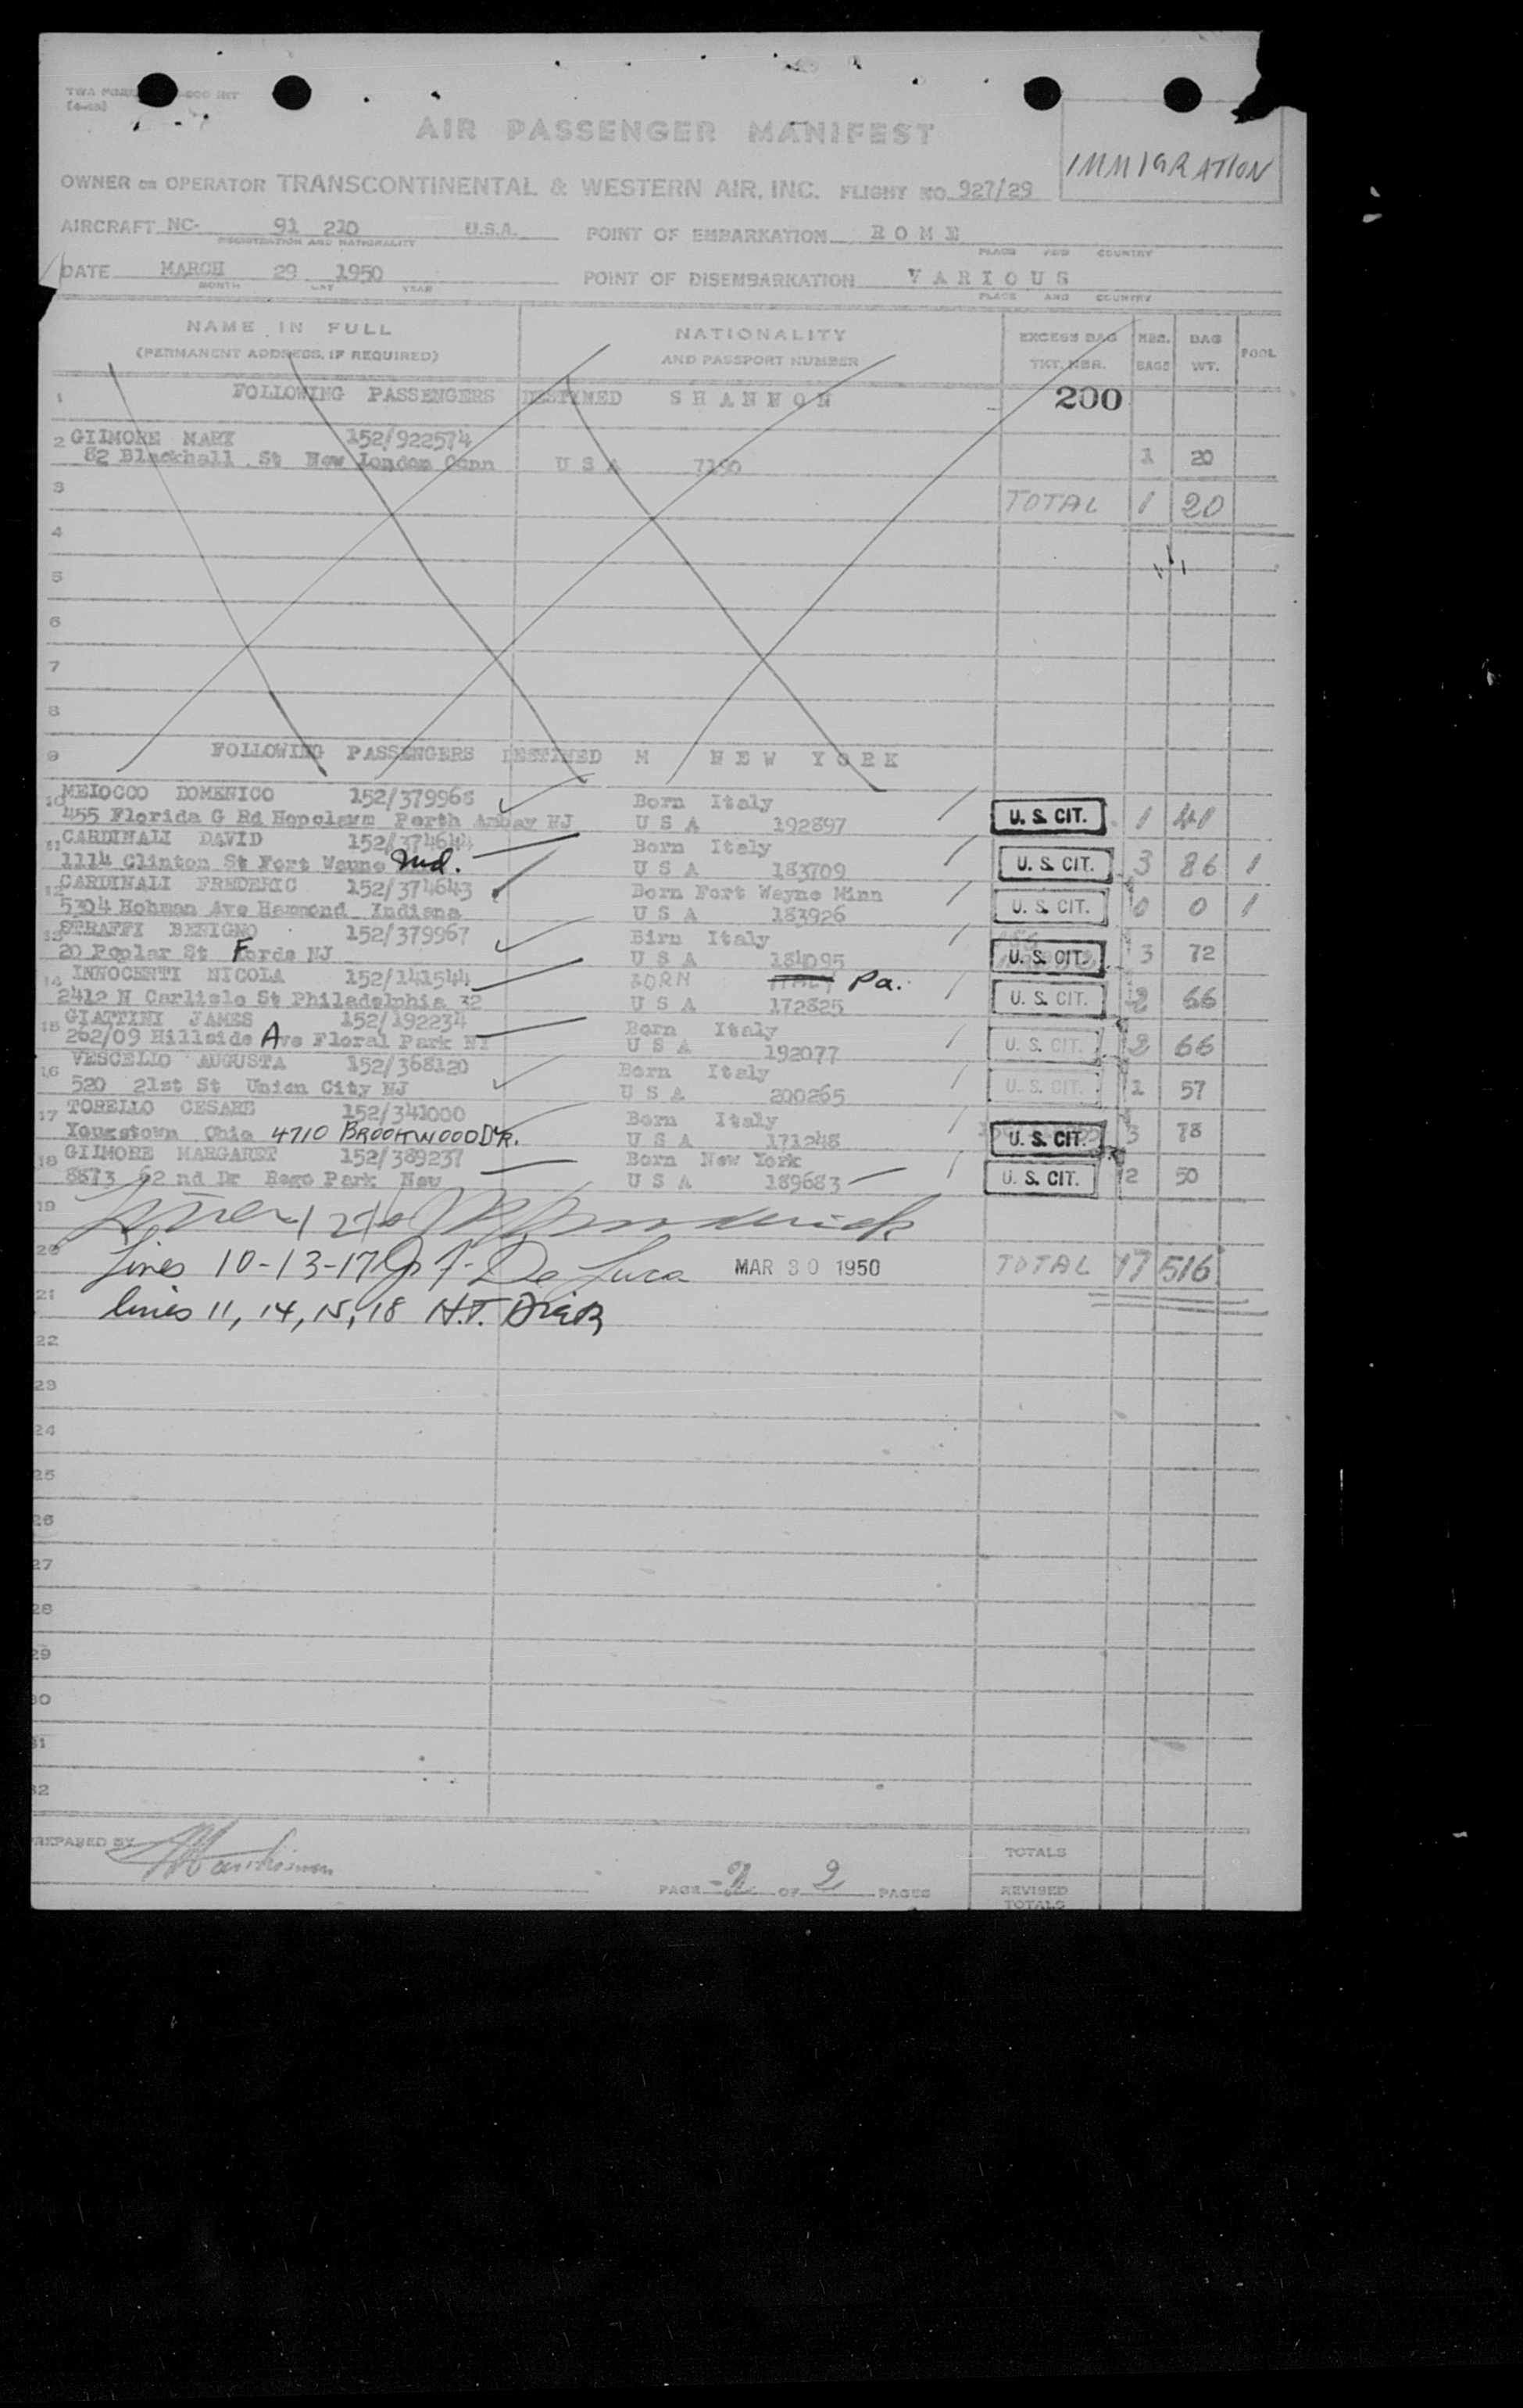 AIR PASSENGER MANIFEST
IMMIGRATION
OWNER OR OPERATOR TRANSCONTINENTAL & WESTERN AIR, INC. FLIGHT NO. 927/29
AIRCRAFT NC- 91 210 U.S.A. POINT OF EMBARKATION ROME
REGISTRATION AND NATIONALITY PLACE AND COUNTRY
DATE MARCH 29 1950 POINT OF DISEMBARKATION VARIOUS
MONTH DAY YEAR PLACE AND COUNTRY
NAME IN FULL NATIONALITY EXCESS BAG NBR. BAG POOL
(PERMANENT ADDRESS, IF REQUIRED) AND PASSPORT NUMBER TKT. NBR. BAGS WT.
1 FOLLOWING PASSENGERS DESTINED SHANNON 200
2 GILMORE MARY 152/922574
82 Blackhall St New London Conn U S A 7190 1 20
3 TOTAL 1 20
4
5
6
7
8
9 FOLLOWING PASSENGERS DESTINED M NEW YORK
10 MEIOCCO DOMENICO 152/379968 Born Italy
455 Florida G Rd Hopelawn Perth Amboy NJ U S A 192897 U. S. CIT. 1 41
11 CARDINALI DAVID 152/374644 Born Italy
1114 Clinton St Fort Wayne Ind. U S A 183709 U. S. CIT. 3 86 1
12 CARDINALI FREDERIC 152/374643 Born Fort Wayne Minn
5304 Hohman Ave Hammond Indiana U S A 183926 U. S. CIT. 0 0 1
13 STRAFFI BENIGNO 152/379967 Birn Italy
20 Poplar St Fords NJ U S A 184095 U. S. CIT. 3 72
14 INNOCENTI NICOLA 152/141544 BORN ITALY Pa.
2412 N Carlisle St Philadelphia 32 U S A 172825 U. S. CIT. 2 66
15 GIATTINI JAMES 152/192234 Born Italy
262/09 Hillside Ave Floral Park NY U S A 192077 U. S. CIT. 2 66
16 VESCELIO AUGUSTA 152/368120 Born Italy
520 21st St Union City NJ U S A 200265 U. S. CIT. 1 57
17 TORELLO CESARE 152/341000 Born Italy
Youngstown Ohio 4710 BROOKWOOD DR. U S A 171248 U. S. CIT. 3 78
18 GILMORE MARGARET 152/389237 Born New York
8873 62 nd Dr Rego Park New U S A 189683 U. S. CIT. 2 50
19
20 Lines 10-13-17 J F De Luca MAR 30 1950 TOTAL 17 516
21 lines 11, 14, 15, 18 H.T.
22
23
24
25
26
27
28
29
30
31
32
PREPARED BY TOTALS
PAGE -2- OF 2 PAGES REVISED
TOTALS